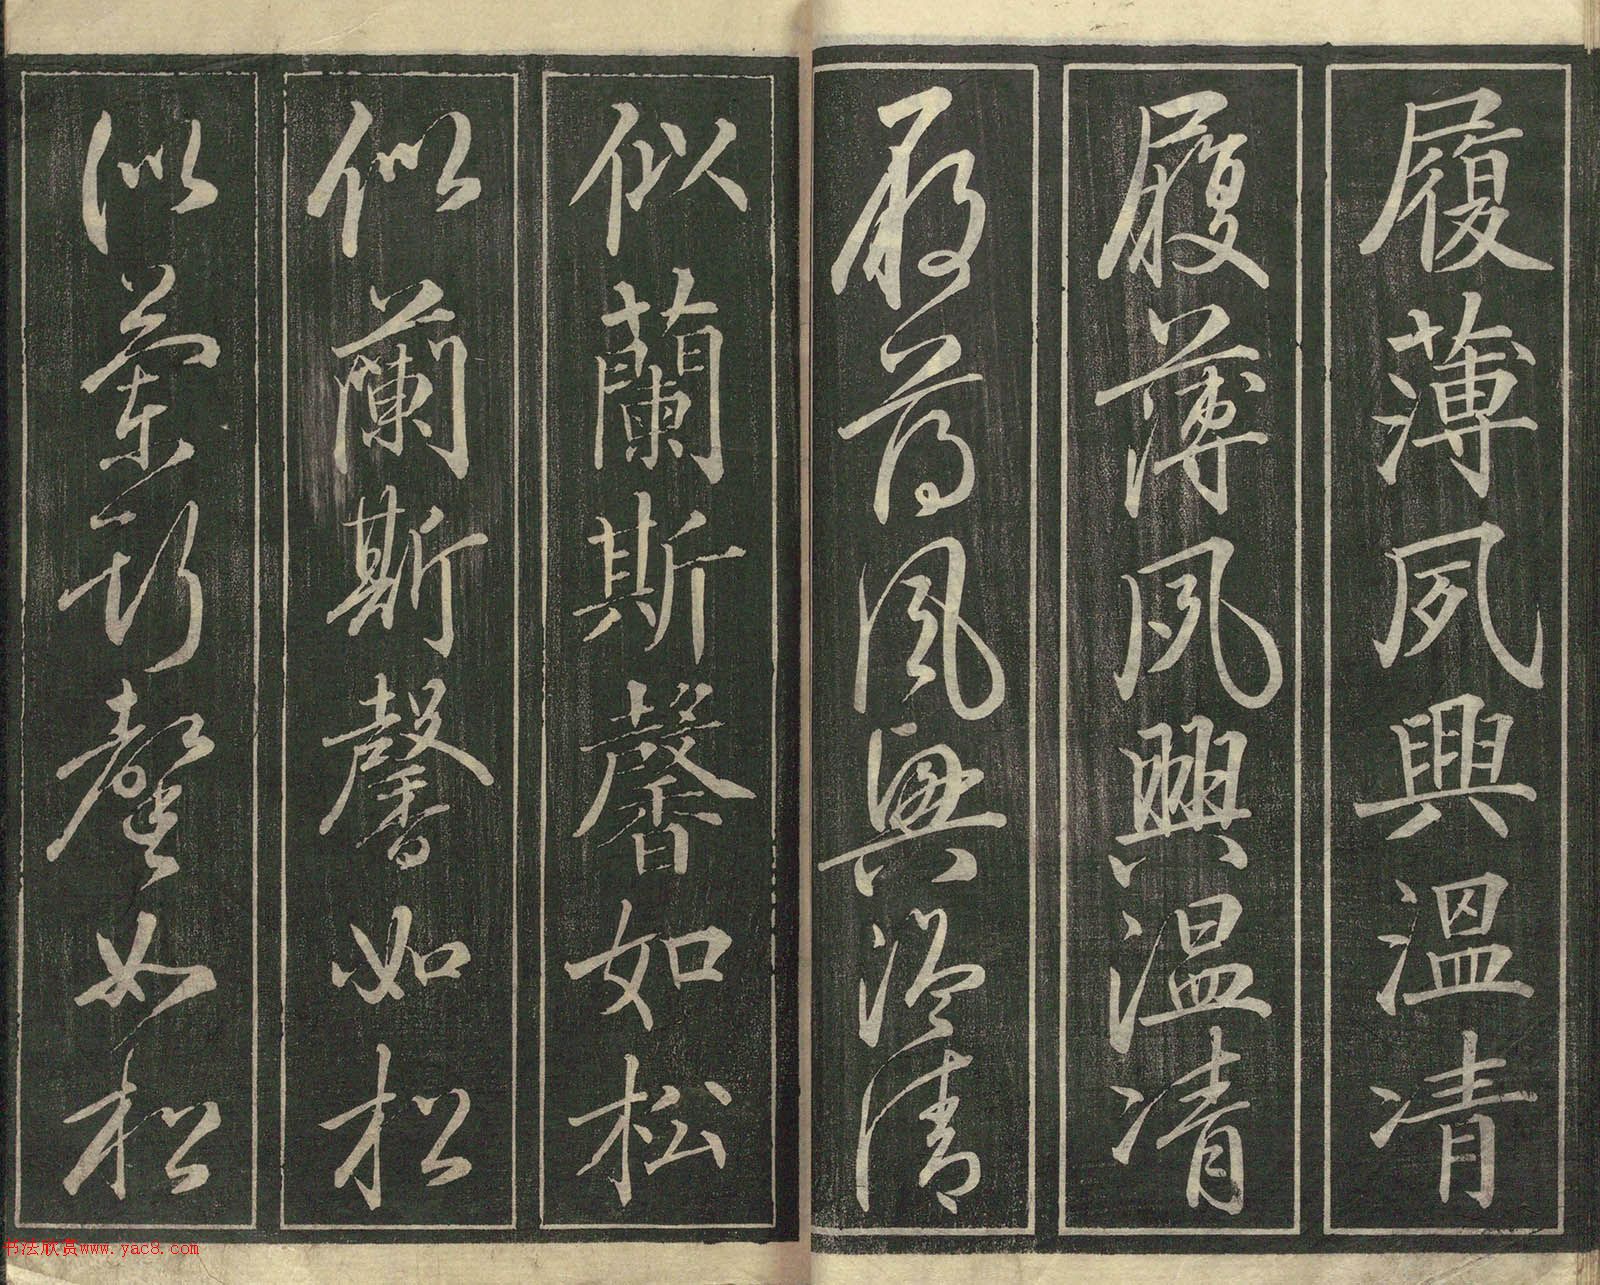 履薄夙興溫凊
履薄夙興温凊
履薄夙興温清
似蘭斯馨如松
似蘭斯馨如松
似蘭斯馨如松
书法欣赏www.yac8.com